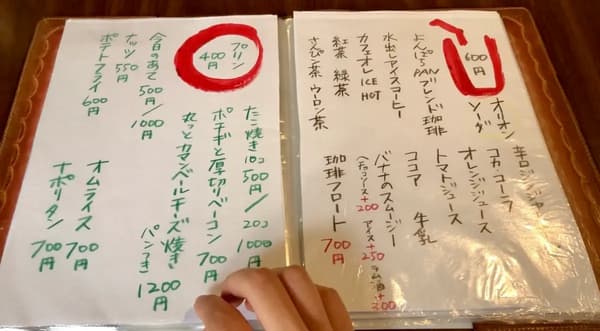 600円
よんぱちPANブレンド珈琲
水出しアイスコーヒー
カフェオレ ICE HOT
紅茶 緑茶
さんぴん茶 ウーロン茶
オリオンソーダ
辛口ジンジャー
コカ・コーラ
オレンジジュース
トマトジュース
ココア 牛乳
バナナのスムージー
(チョコソース+200 アイス+250 ラム酒+200
珈琲フロート 700円
プリン 400円
たこ焼き10コ500円/20コ1000円
ポテチと厚切りベーコン 700円
丸っとカマンベールチーズ焼き パンつき 1200円
今日のあて 500円/1000円
ナッツ 550円
ポテトフライ 600円
オムライス 700円
ナポリタン 700円